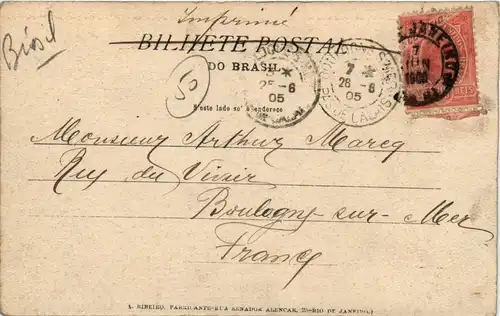 Imprimé
Brésil
BILHETE POSTAL
DO BRASIL
N'este lado só o endereço
50
7
JUN
25-6
05
7
26-6
05
Monsieur Arthur Marcq
Rue du Vivier
Boulogne-sur-Mer
France
A. RIBEIRO, FABRICANTE-RUA SENADOR ALENCAR, 25-RIO DE JANEIRO